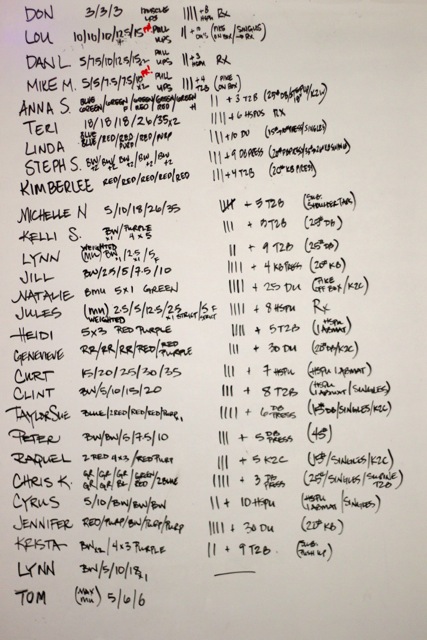 DON 3/3/3 MUSCLE UPS |||| +8 HSPU Rx
LOU 10/10/10/12.5/15 PR PULL UPS || +
DAN L. 5/7.5/10/12.5/15 x2 PULL UPS || + 3 HSPU RX
MIKE M. 5/5/7.5/7.5/10 PR x2 PULL UPS ||| +4 T2B (PIKE ON BOX)
ANNA S. BLUE GREEN/GREEN ||| + 3 T2B
TERI 18/18/18/26/35x2 |||| +6 HSPUS RX
LINDA BLUE BLUE/RED/RED/RED/PURP ||| +10 DU
STEPH S. BW/BW/BW/BW/BW +2 ||| +9 DB PRESS
KIMBERLEE RED/RED/RED/RED/RED ||| +4 T2B (20# KB PRESS)
MICHELLE N 5/10/18/26/35 + 3 T2B (SUB. SHOULDER TAP)
KELLI S. BW/PURPLE x1 4x5 ||| + 3 T2B (25# DB)
LYNN WEIGHTED (MU) BW/2.5/5 || + 9 T2B (25# DB)
JILL BW/2.5/5/7.5/10 |||| + 4 KB PRESS (20# KB)
NATALIE BMU 5x1 GREEN |||| + 25 DU (PIKE OFF BOX/K2C)
JULES (MU) 2.5/5/12.5/25 WEIGHTED x1 STRICT |||| + 8 HSPU Rx
HEIDI 5x3 RED PURPLE + 5 T2B (HSPU 1 ABMAT)
GENEVIEVE RR/RR/RR/RED/RED PURPLE ||| + 30 DU (20# DB/K2C)
CURT 15/20/25/30/35 ||| + 7 HSPU (HSPU 1 ABMAT)
CLINT BW/5/10/15/20 ||| + 8 T2B (HSPU 1 ABMAT/SINGLES)
TAYLOR SUE BLUE/2RED/RED/RED/PURP |||| + 6 DB PRESS (15# DB/SINGLES/K2C)
PETER BW/BW/5/7.5/10 ||| + 5 DB PRESS (45#)
RAQUEL 2 RED 4x3/RED PURP ||| + 5 K2C (15#/SINGLES/K2C)
CHRIS K. GR/GR/GR/GREEN RED/2BLUE |||| + 3 DB PRESS (25#/SINGLES/SUPINE T2B)
CYRUS 5/10/BW/BW/BW || + 10 HSPU (HSPU 1 ABMAT/SINGLES)
JENNIFER RED/PURP/BW/PURP/PURP |||| + 30 DU (20# KB)
KRISTA BW x2/4x3 PURPLE || + 9 T2B (SUB. PUSH UP)
LYNN BW/5/10/18 x1
TOM (MAX MU) 5/6/6